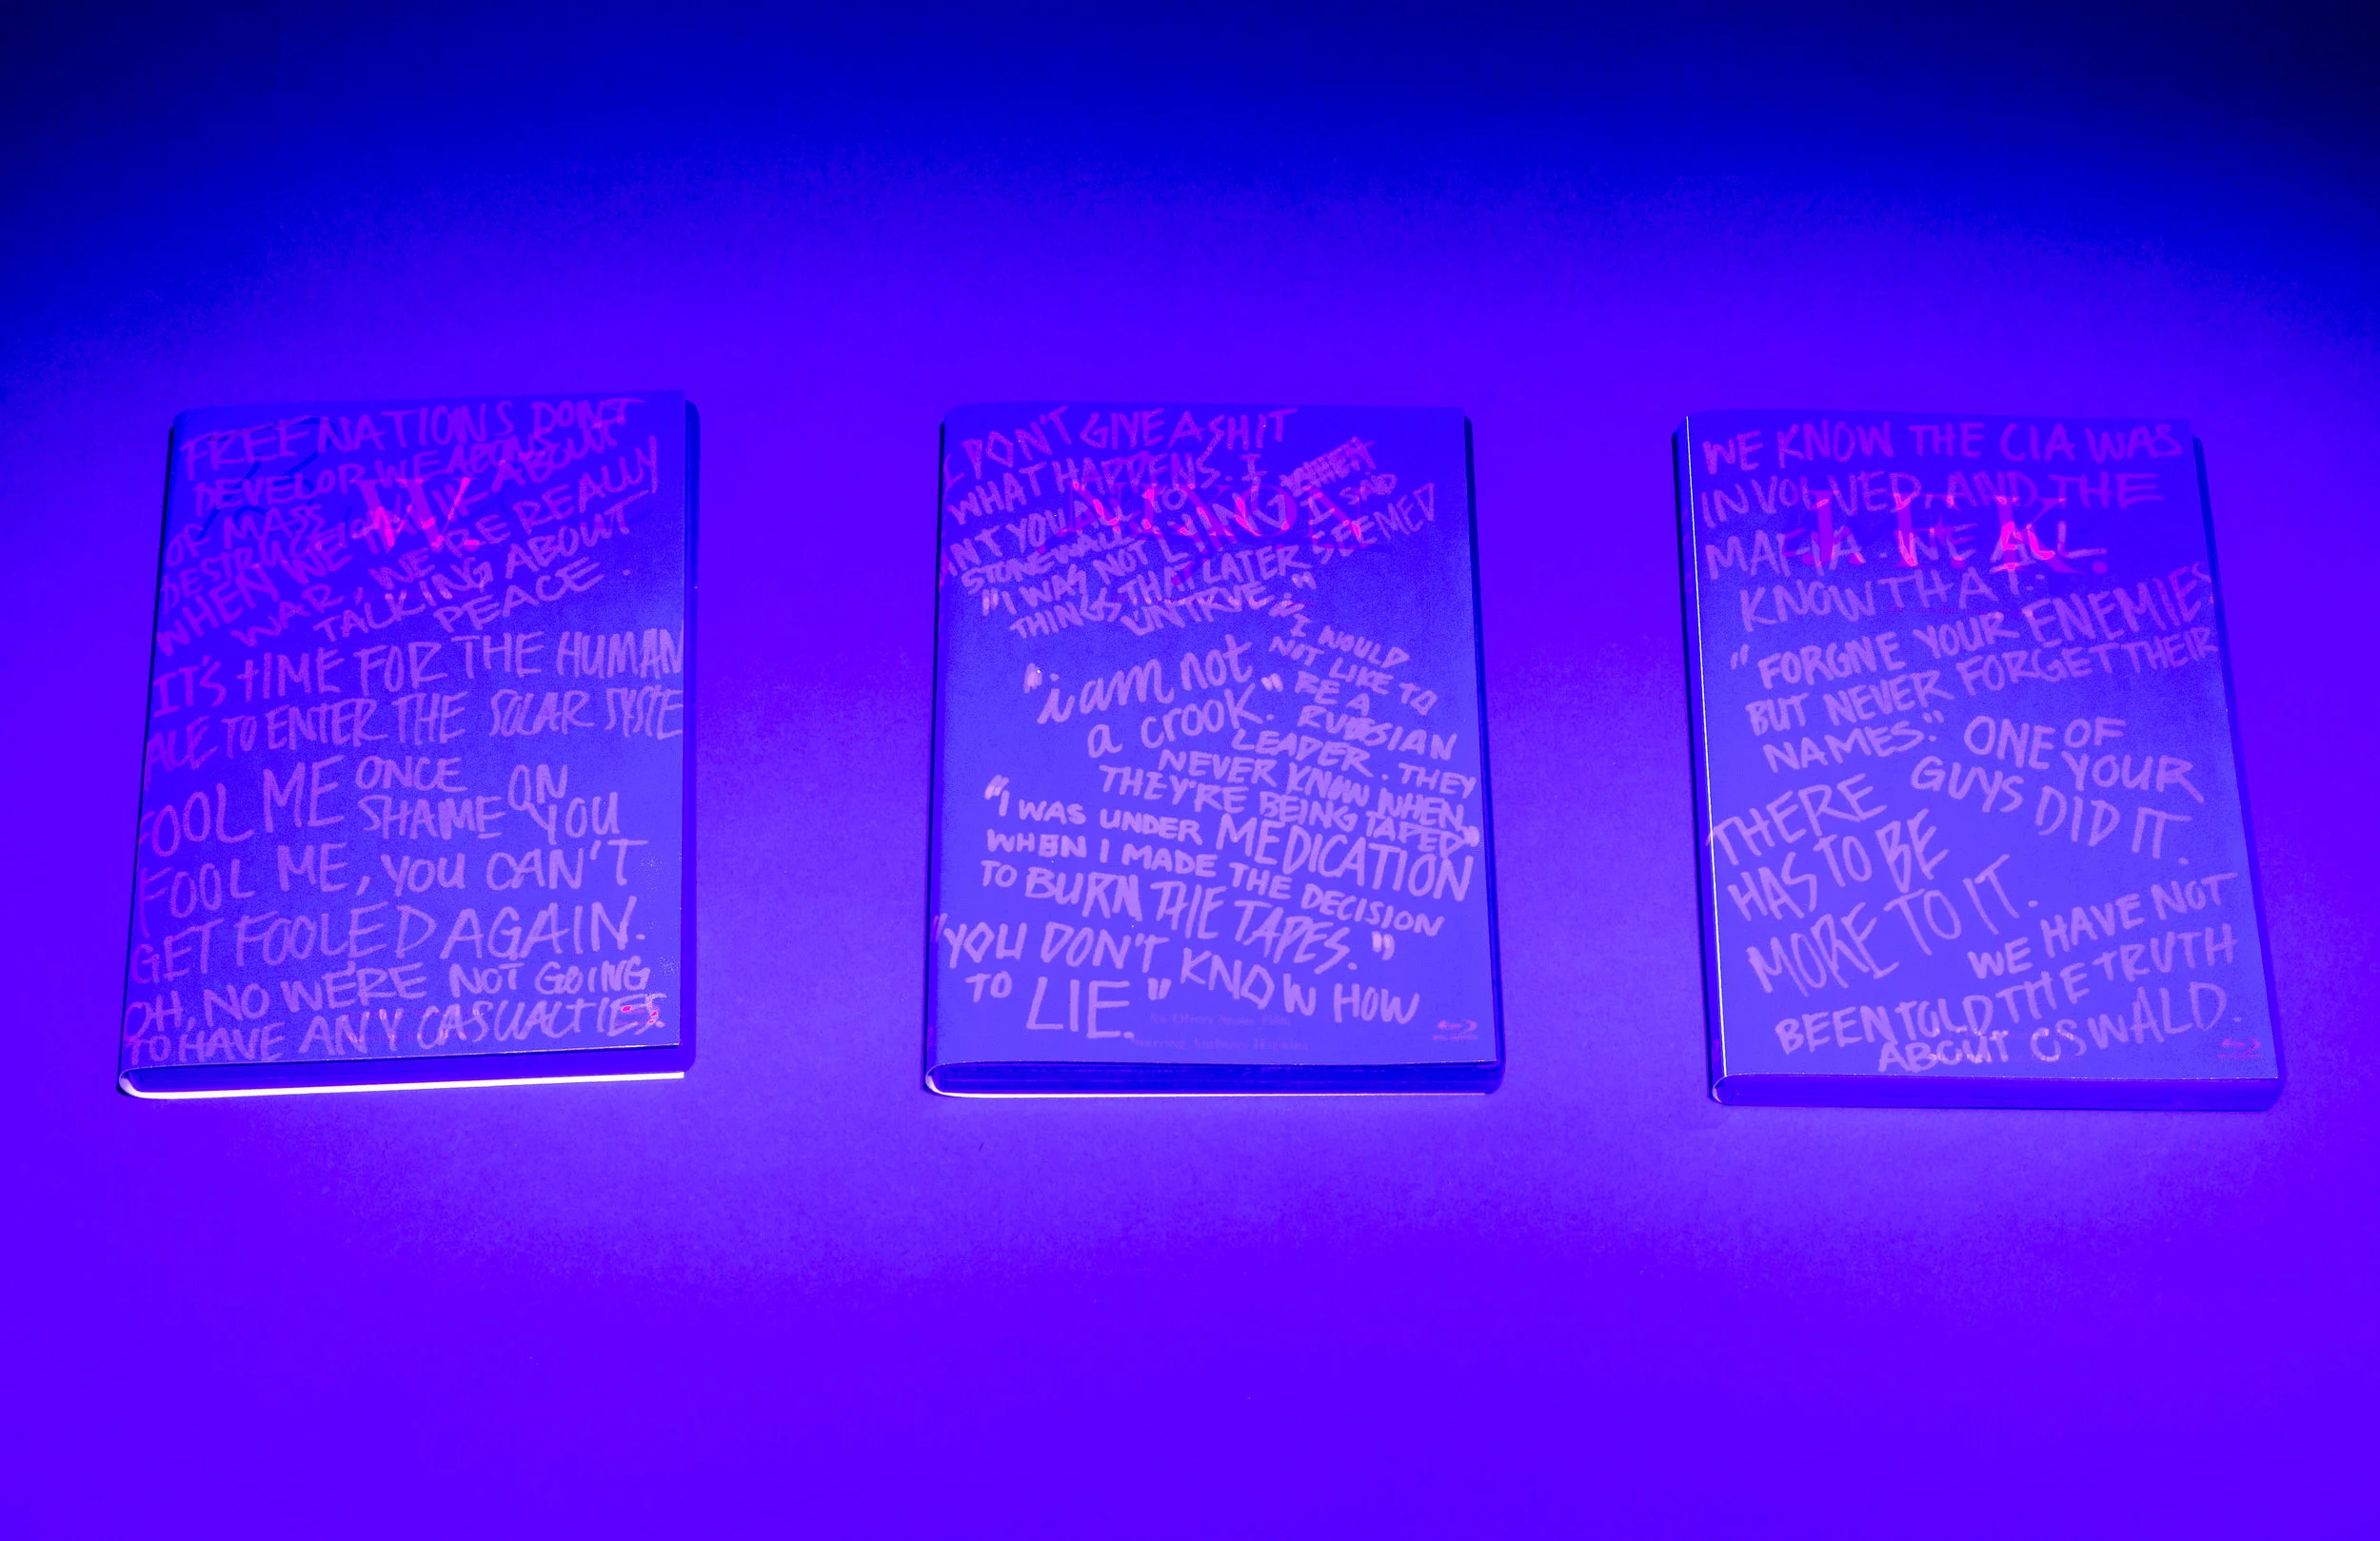 FREE NATIONS DON'T
DEVELOP WEAPONS
OF MASS
DESTRUCTION
WHEN WE TALK ABOUT
WAR, WE'RE REALLY
TALKING ABOUT
PEACE.
IT'S TIME FOR THE HUMAN
TO ENTER THE SOLAR SYSTE
FOOL ME ONCE
SHAME ON
YOU
FOOL ME, YOU CAN'T
GET FOOLED AGAIN.
OH, NO WE'RE NOT GOING
TO HAVE ANY CASUALTIES.
W.
I DON'T GIVE A SHIT
WHAT HAPPENS. I
ANT YOU ALL TO
STONEWALL
"I WAS NOT LYING I SAID
THINGS THAT LATER SEEMED
UNTRUE"
NIXON
"I WOULD
NOT LIKE TO
BE A
RUSSIAN
LEADER. THEY
NEVER KNOW WHEN
THEY'RE BEING TAPED"
"i am not
a crook."
"I WAS UNDER MEDICATION
WHEN I MADE THE DECISION
TO BURN THE TAPES."
"YOU DON'T KNOW HOW
TO LIE."
An Oliver Stone Film
Starring Anthony Hopkins
WE KNOW THE CIA WAS
INVOLVED, AND THE
MAFIA. WE ALL
KNOW THAT.
J.F.K.
"FORGIVE YOUR ENEMIES,
BUT NEVER FORGET THEIR
NAMES."
ONE OF
YOUR
GUYS DID IT.
THERE
HAS TO BE
MORE TO IT.
WE HAVE NOT
BEEN TOLD THE TRUTH
ABOUT OSWALD.